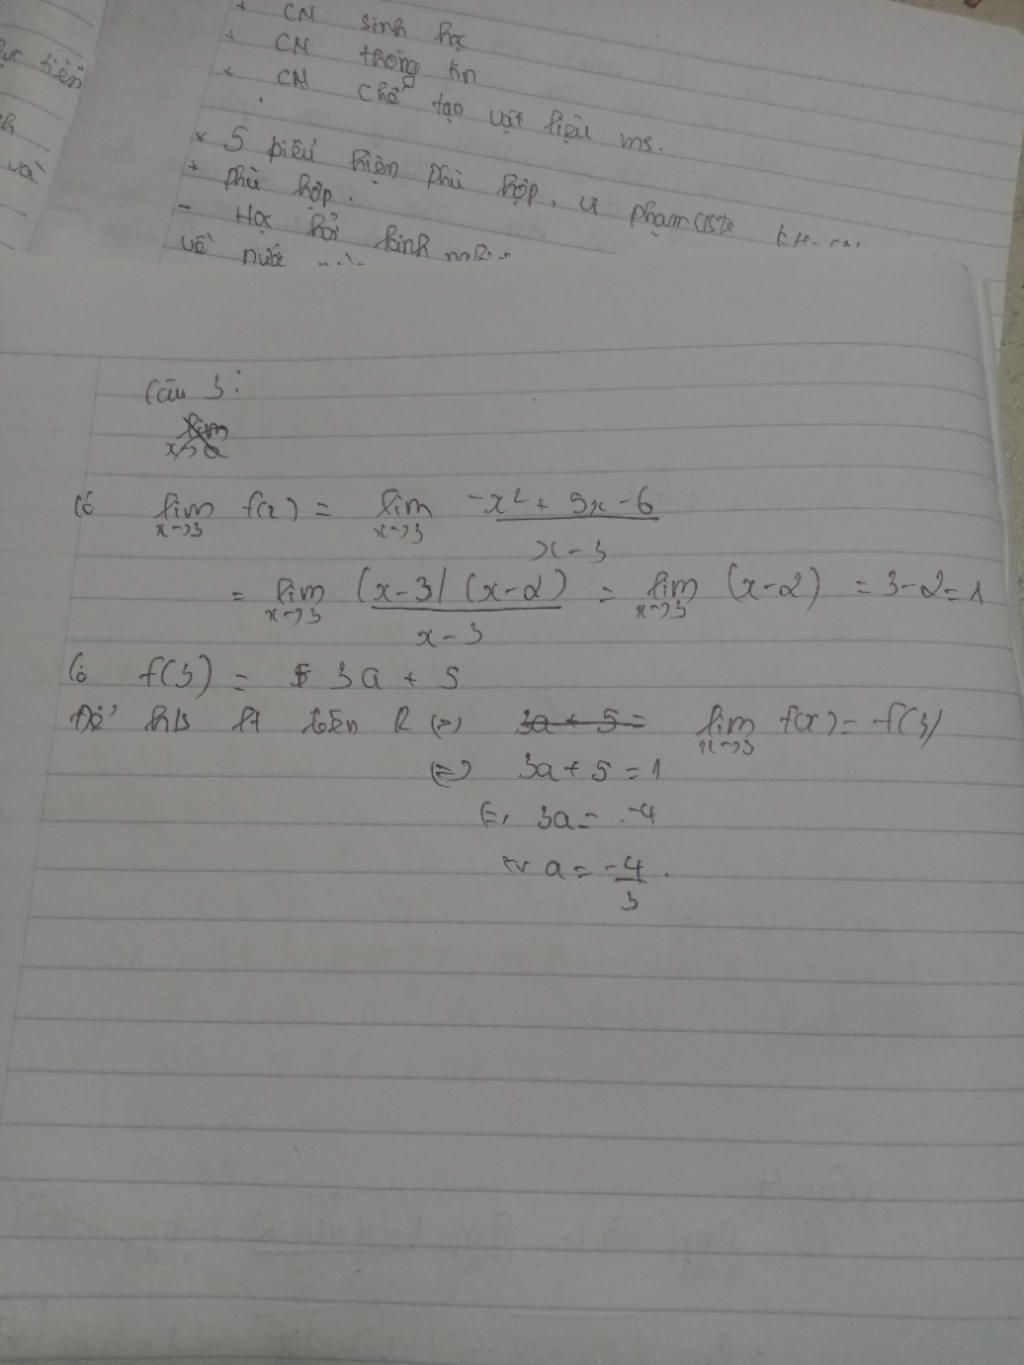 + CN sinh học
+ CN thông tin
+ CN chế tạo vật liệu ms.
tiền
và
* 5 biểu hiện phù hợp, 4 phạm
+ phù hợp.
- Học hỏi kinh
về nước
Câu 3:
lim x→a
Có lim x→3 f(x) = lim x→3 (-x² + 5x - 6)/(x - 3)
= lim x→3 (x-3)(x-2)/(x-3) = lim x→3 (x-2) = 3-2=1
Có f(3) = 3a + 5
Để h/s lt trên R (=) 3a + 5 = lim x→3 f(x) = f(3)
(=) 3a + 5 = 1
(=) 3a = -4
(=) a = -4/3.